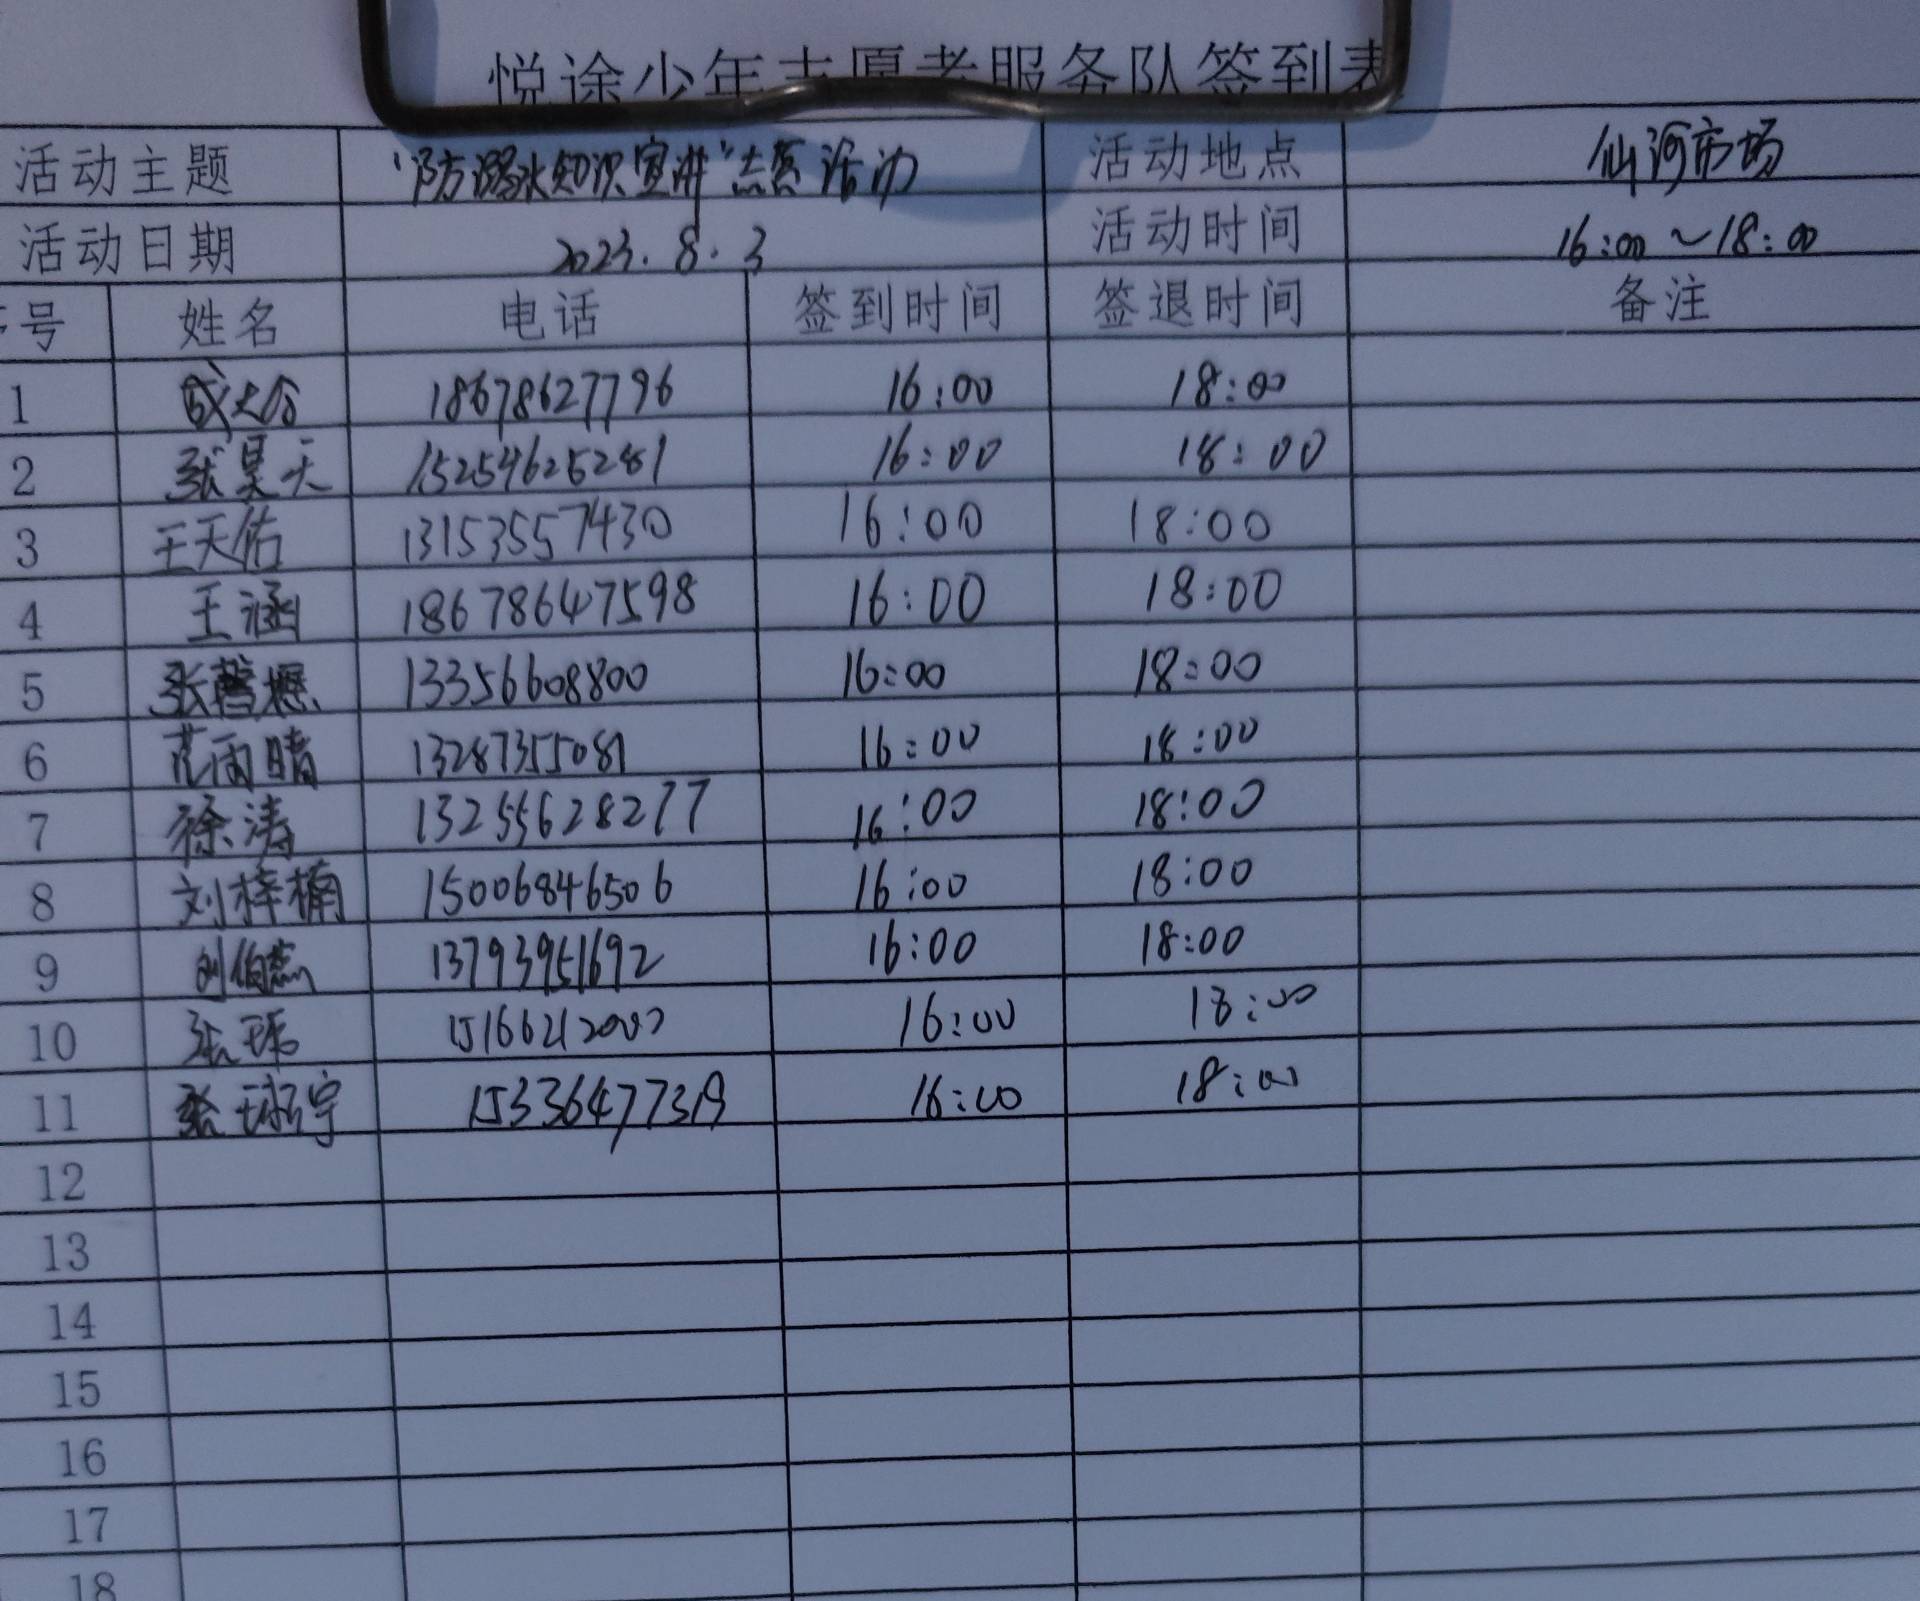 悦途少年志愿者服务队签到表
活动主题 "防溺水知识宣讲"志愿活动 活动地点 仙河市场
活动日期 2023.8.3 活动时间 16:00~18:00
序号 姓名 电话 签到时间 签退时间 备注
1 18678627796 16:00 18:00
2 张昊天 15254625281 16:00 18:00
3 王天佑 13153557430 16:00 18:00
4 王涵 18678647598 16:00 18:00
5 张馨懋 13356608800 16:00 18:00
6 范雨晴 13287355081 16:00 18:00
7 徐涛 13255628277 16:00 18:00
8 刘梓楠 15006846506 16:00 18:00
9 刘伯燕 13793951692 16:00 18:00
10 张 16:00 18:00
11 张 宇 16:00 18:00
12
13
14
15
16
17
18